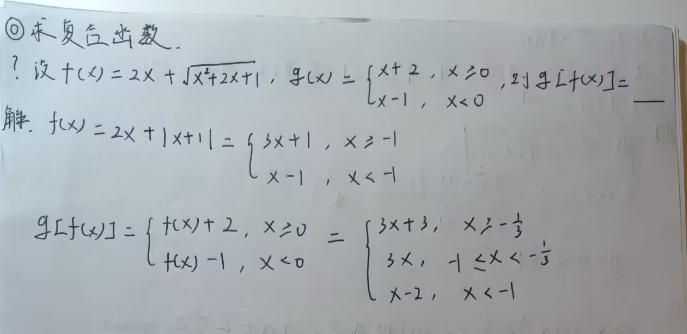 ◎求复合函数.
? 设 f(x) = 2x + √(x²+2x+1), g(x) = { x+2, x≥0 ; x-1, x<0 , 则 g[f(x)] = ___
解. f(x) = 2x + |x+1| = { 3x+1, x≥-1 ; x-1, x<-1
g[f(x)] = { f(x)+2, x≥0 ; f(x)-1, x<0 = { 3x+3, x≥-1/3 ; 3x, -1≤x<-1/3 ; x-2, x<-1